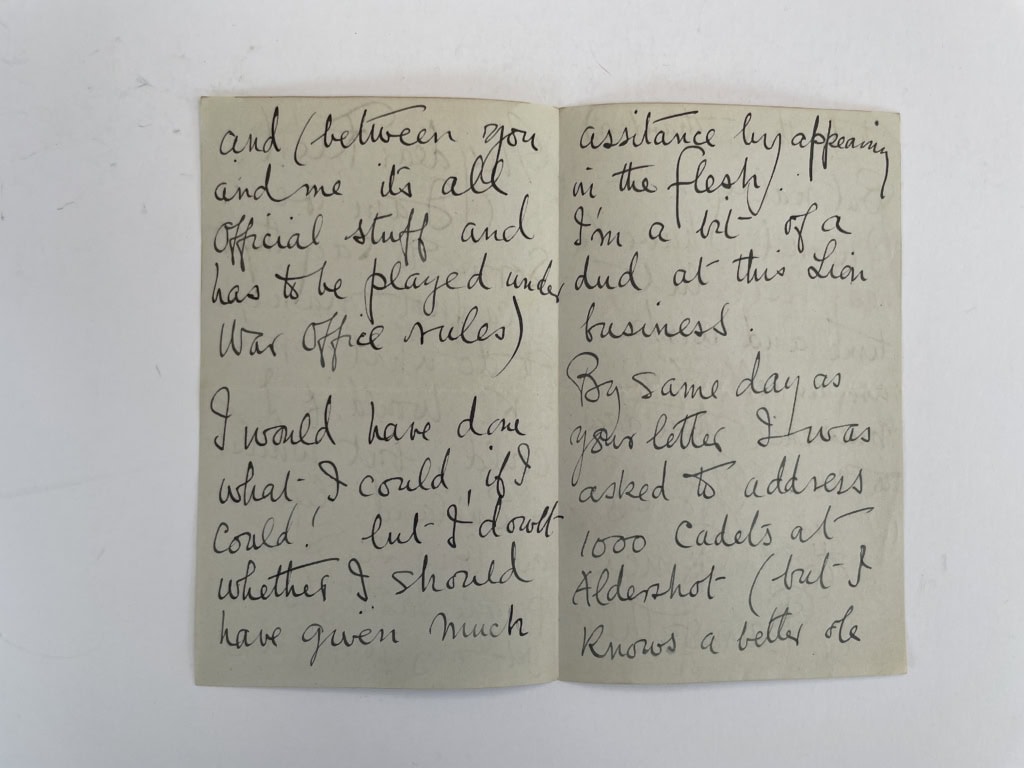 and (between you
and me it's all
official stuff and
has to be played under
War Office rules)
I would have done
what I could, if I
could! but I doubt
whether I should
have given much
assitance by appearing
in the flesh).
I'm a bit of a
dud at this Lion
business.
By same day as
your letter I was
asked to address
1000 Cadets at
Aldershot (but I
knows a better ole